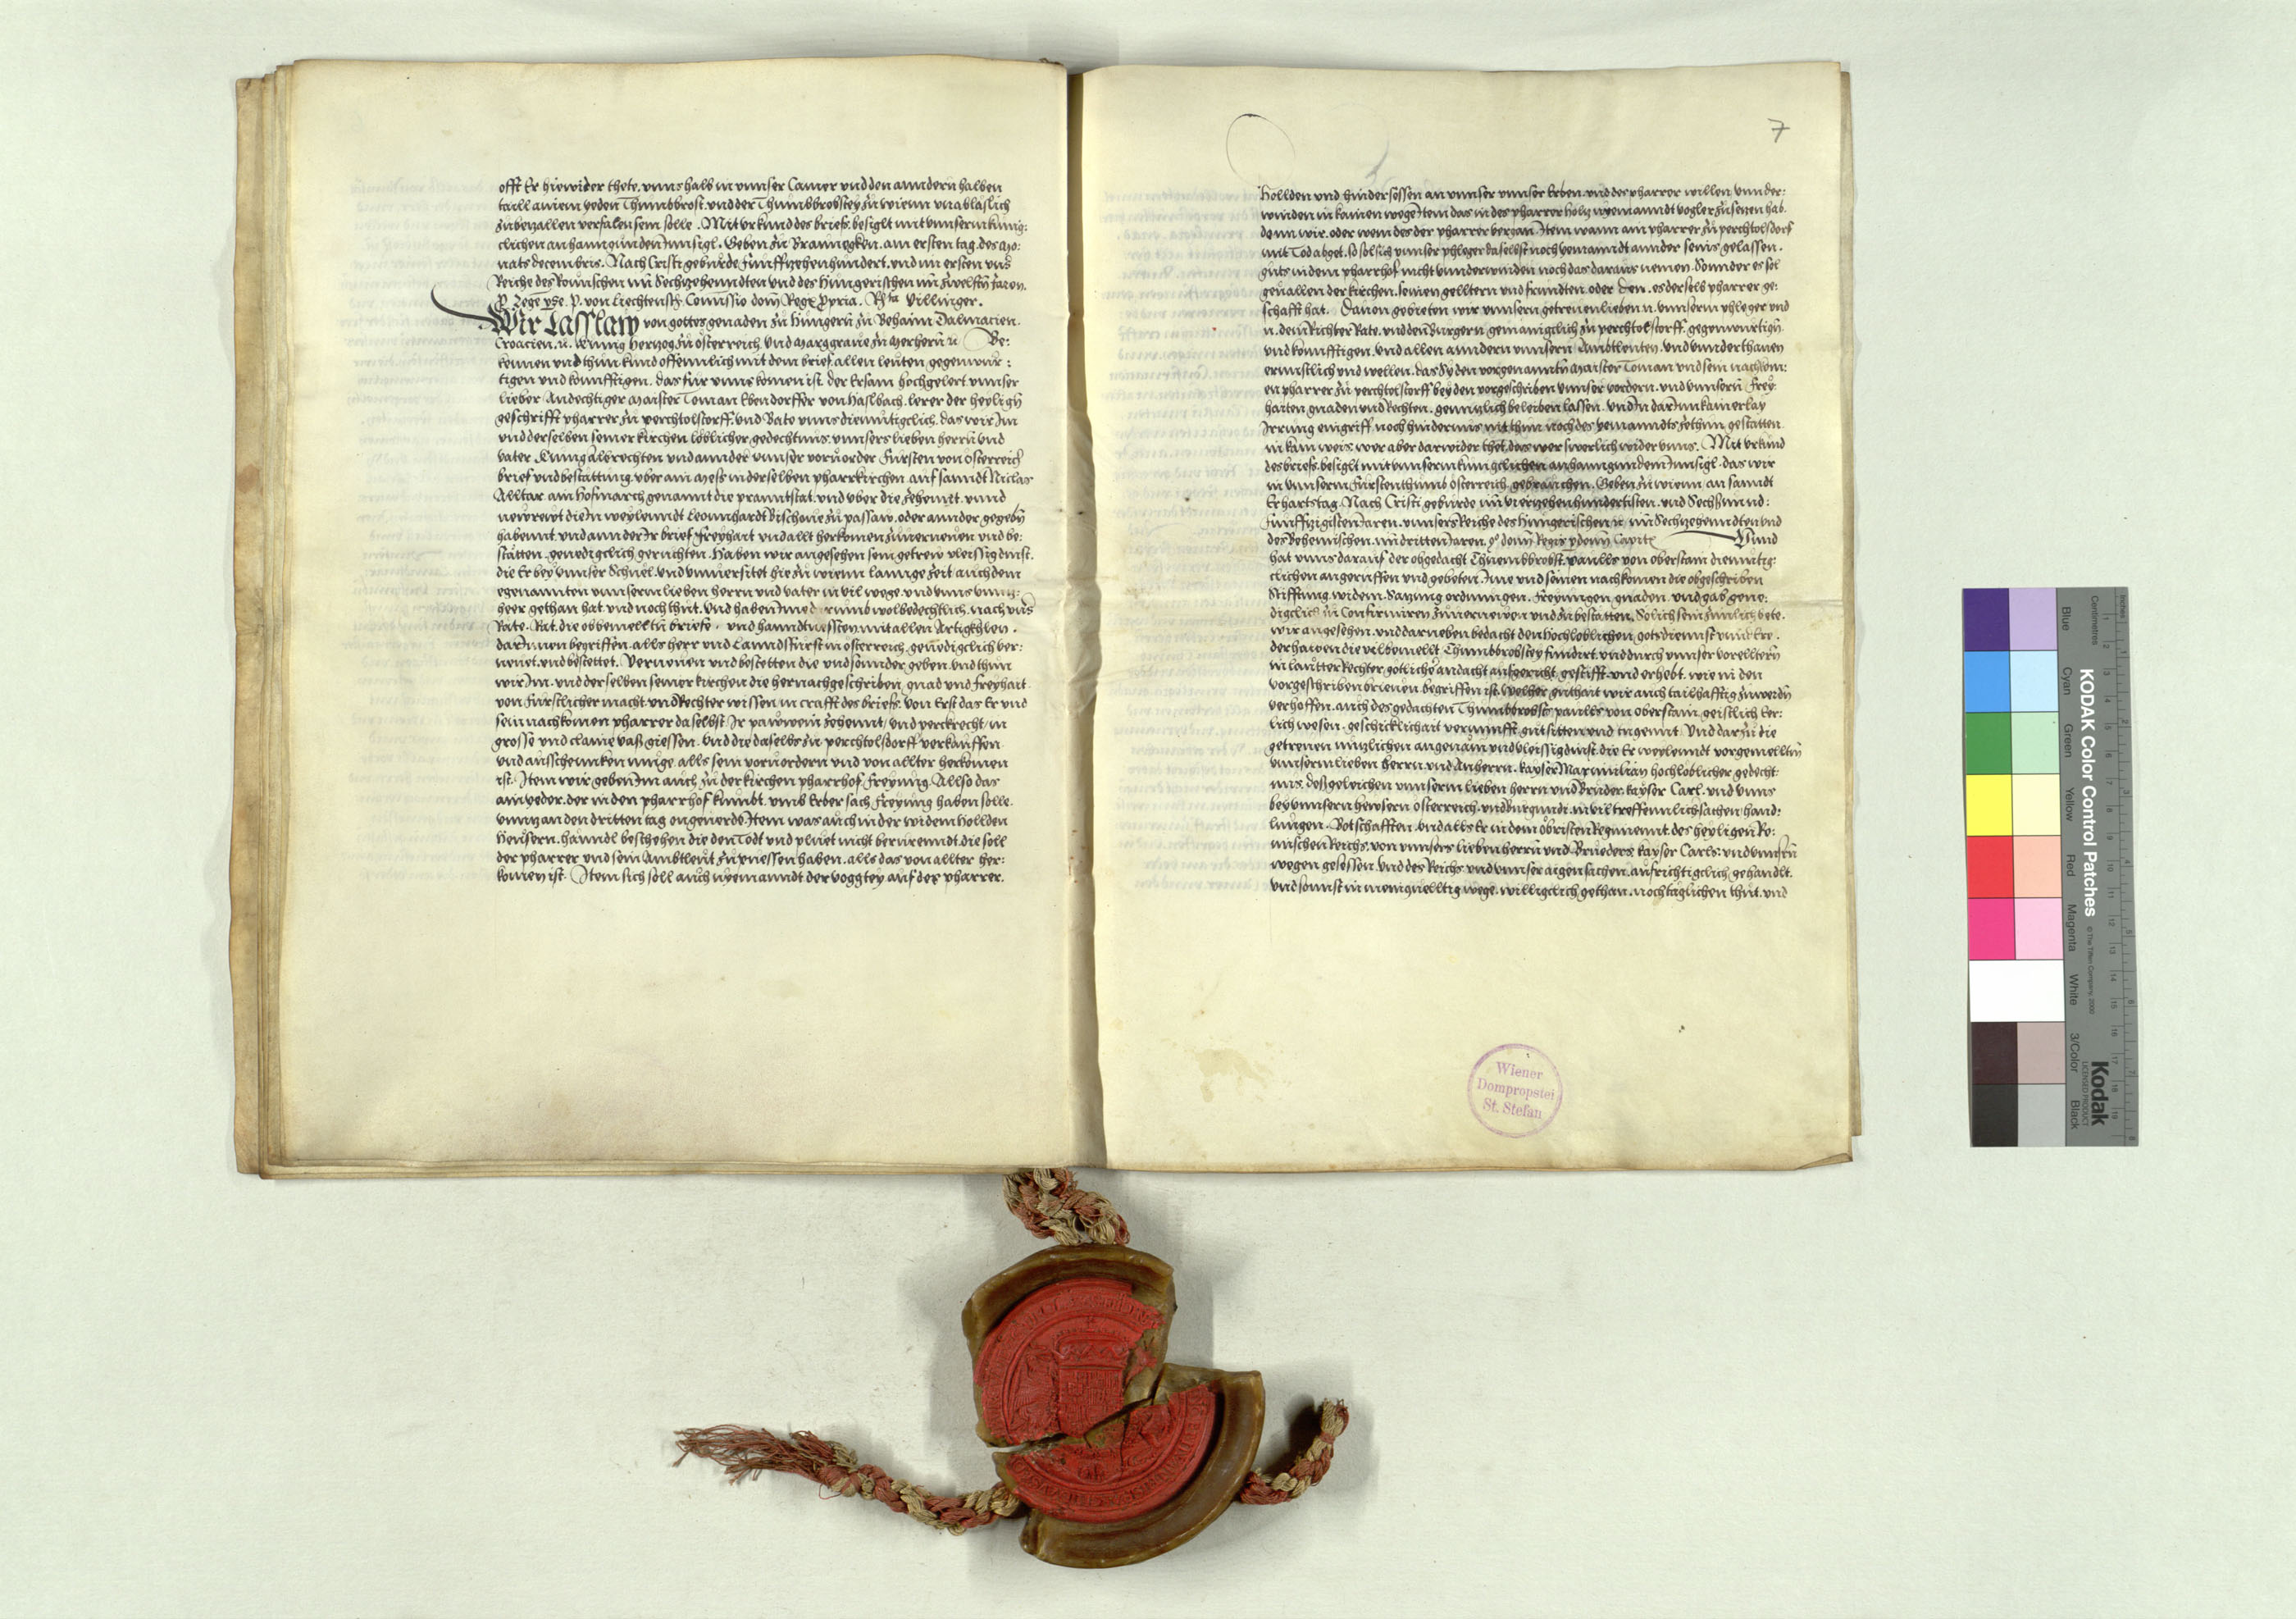 offt Er hiewider thete. vnns halb in vnnser Camer vnd den anndern halben
taill ainem yeden Thumbbrost. vnd der Thumbbrobstey zu wienn vnablaslich
zubezallen verfalen sein solle. Mit vrkund des briefs. besiglt mit vnnserm kunig:
clichen anhanngunden Innsigl. Geben zu Braunegken. am ersten tag. des Mo:
nats decembris. Nach Cristi geburde funffzehenhundert. vnd im ersten vnns
Reiche des Romischen im Sechzehenndten vnd des Hungerischen im zwelfftn Jaren.
P. von Liechtenstn. Comissio dom Regis ppria. Rta Villinger.
Wir Lasslaw von gottes genaden zu Hungern zu Behaim Dalmacien
Croacien. rc. kunig Hertzog zu osterreich. vnd Marggraue zu Merhern rc Be:
kennen vnd thun kund offennlich mit dem brief. allen leuten gegenwur:
tigen vnd konnfftigen. das fur vnns komen ist. der Ersam hochgelert vnnser
lieber Andechtiger Maister Toman Ebendorffer von Haslbach. lerer der heylign
geschrifft pharrer zu perchtolstorff. vnd Bate vnns diemutiglich. das wir Im
vnd derselben seiner kirchen loblicher gedechtnus. vnnsers lieben herrn vnd
vater. kunig albrechten vnd annder vnnser voruorder Fursten von osterreich
brief vnd bestattung. vber ain Mess in derselben pharrkirchen auf sanndt Niclas
Alltar ain Hofmarch genannt die pranntstat. vnd vber die zehennt. vnnd
newrewt die In weylenndt Leonnhardt Bischoue zu passaw. oder annder gegebn
habennt. vnd annder Ir brief freyhait vnd allt herkomen zuuernewen vnd be:
statten. genedigclich geruchten. Haben wir angesehen sein getrew vleissig dinst.
die Er bey vnnser Schuel. vnd vniuersitet hie zu wienn lannge zeit auch dem
egenannten vnnserm lieben herrn vnd vater in vil wege. vnd vnns
geer gethan hat. vnd noch thut. vnd haben Im wolbedechtlich. nach vns
Rate. Rat. die obbemelltn briefe. vnd hanndtuessten mit allen Artigkhlen.
darInnen begriffen. alls herr vnd Lanndsfurst in osterreich. genedigclich ver:
newet. vnd bestettet. Vernewen vnd bestetten die vnd sonnder geben. vnd thun
wir Im. vnd derselben seiner kirchen die hernachgeschriben. gnad vnd freyhait
von furstlicher macht. vnd Rechter wissen. in crafft des briefs. Von Erst das Er vnd
sein nachkomen pharrer daselbst. Ir pawwein zehennt. vnd perckrecht. in
grosse vnd claine vaß giessen. vnd die daselbs zu perchtolsdorff verkauffen
vnd ausschennken muge. alls sein voruordern vnd von allter herkomen
ist. Item wir geben Im auch zu der kirchen pharrhof freyung. Allso das
ain yeder. der in den pharrhof kumbt. vmb Erber sach freyung haben solle.
vnntz an den dritten tag ongeuerde. Item was auch in der widem hollden
Hewsern. hanndl beschehen die den Todt vnd pluet nicht berurenndt. die soll
der pharrer vnd sein Ambtleut zu puessen haben. alls das von allter her:
komen ist. Item sich soll auch nyemanndt der voggtey auf des pharrer.
7
Hollden vnd hindersessen an vnnser vnnser Erben. vnd des pharrer willen. vnnder:
winden in kainen wege. Item das in des pharrer holtz nyemanndt vogler zusetzen hab.
dann wir. oder wem des der pharrer vergan. Item wann ain pharrer zu perchtolsdorf
mit Tod abget. so sol sich vnnser phleger daselbst noch yemanndt annder seins gelassen.
guts in dem pharrhof nicht vnnderwinden noch das daraus nemen. Sonnder es sol
geuallen der kirchen. seinen gelltern vnd frundten. oder den. es derselb pharrer ge:
schafft hat. Dauon gebieten wir vnnsern getrewen lieben n. vnnserm phleger vnd
n. dem Richter Rate. vnd den Burgern gemainigclich zu perchtolstorff. gegenwurtign
vnd konnfftigen. vnd allen anndern vnnsern Ambtleuten. vnd vnnderthanen
ernnstlich vnd wellen. das Sy den vorgenanntn Maister Toman vnd sein nachkom:
en pharrer zu perchtolstorff bey den vorgeschriben vnnser vordern. vnd vnnsern frey:
haiten gnaden vnd Rechten. genntzlich beleiben lassen. vnd In darInn kainerlay
Irrung eingriff. noch hindernus nit thun noch des yemanndts zethun gestatten
in kain weis. wer aber darwider thet. das wer swerlich wider vnns. Mit vrkund
des briefs. besiglt mit vnnserm kunigclichen anhanngundem Innsigl. das wir
in vnnserm Furstenthumb osterreich gebrauchen. Geben zu wienn an sanndt
Erhartstag. Nach Cristi geburde im vierzehenhundertisten. vnd Sechsund:
funffzigisten Jaren. vnnsers Reiche des Hungerischen rc im Sechzehenndten vnd
des Behemischen. im dritten Jaren. Vnnd
hat vnns darauf der obgedacht Thuembbrobst. paulls von oberstain diemutig:
clichen angeruffen vnd gebeten. Ime vnd seinen nachkomen die obgeschriben
Stifftung. widem. Satzung ordnungen. freyungen gnaden vnd gab gene:
digclich zu Confirmiren zuuernewen vnd zu bestatten. Solich sein zimlich bete.
wir angesehen. vnd darneben bedacht den hochloblichen gotsdiennst vnnd Ere.
derhalben die vilbemellt Thumbbrobstey fundirt. vnd durch vnnser vorelltern
in lautter Rechter gotlicher andacht aufgericht gestifft. vnd erhebt. wie in den
vorgeschriben brieuen begriffen ist. welher guthait wir auch tailhafftig zuwerdn
verhoffen. auch des gedachten Thumbbrobsts paulls von oberstain. geistlich Eer:
lich wesen. geschicklichait vernunfft gut sitten vnd tugennt. Vnd darzu die
getrewen nutzlichen angenam vnd vleissig dinst. die Er weylenndt vorgemelltn
vnnserm lieben Herrn vnd Anherrn. kayser Maximilian hochloblicher gedecht:
nus. deßgeleichen vnnserm lieben herrn vnd Bruder. kayser Carl. vnd vnns
bey vnnsern hewsern osterreich. vnd Burgundi. in vil treffennlich sachen. hand:
lungen. Botschafften. vnd alls Er in dem obristen Regiment. des heyligen Ro:
mischen Reichs. von vnnsers lieben herrn vnd Brueders. kayser Carls. vnd vnnsern
wegen gesessen. vnd des Reichs vnd vnnser aigen sachen. aufrichtigclich gehandlt.
vnd sonnst in menigfelltig wege. willigclich gethan. noch taglichen thut. vnd
Wiener
Dompropstei
St. Stefan
KODAK Color Control Patches
© The Tiffen Company, 2000
Kodak
LICENSED PRODUCT
Centimetres
Inches
Blue
Cyan
Green
Yellow
Red
Magenta
White
3/Color
Black